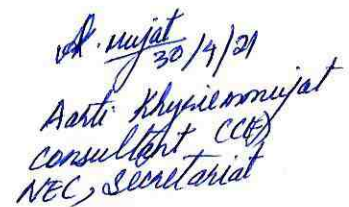 A. nujat
30/4/21
Aarti Khyriemmujat
Consultant (CCE)
NEC, Secretariat